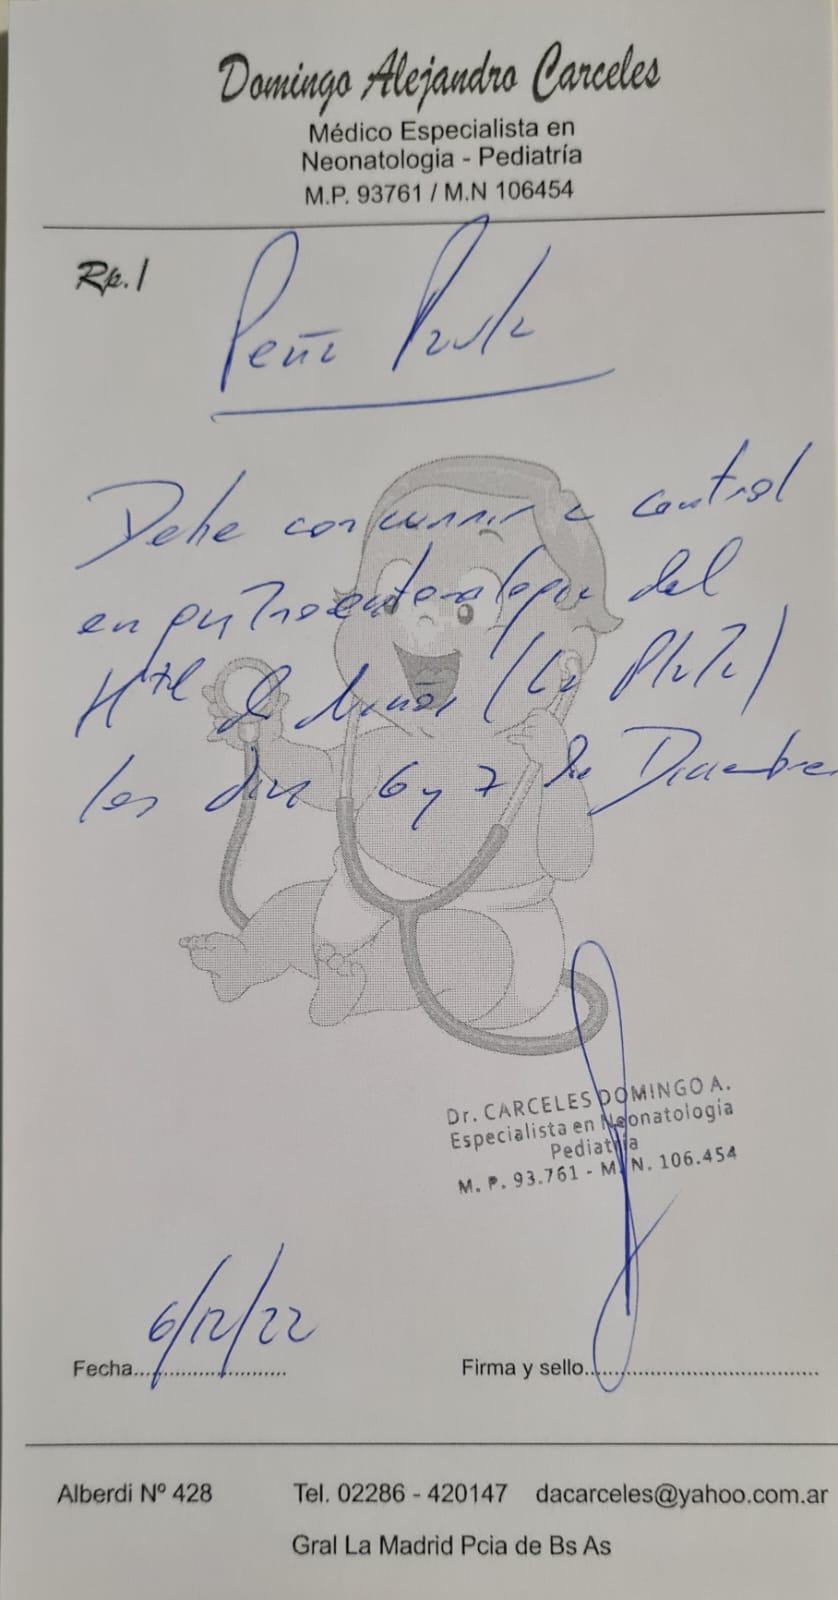 Domingo Alejandro Carceles
Médico Especialista en
Neonatologia - Pediatría
M.P. 93761 / M.N 106454
Rp./
Peña Paula
Debe concurrir a control
en gastroenterologia del
Htal de Niños (La Plata)
los dias 6 y 7 de Diciembre
Dr. CARCELES DOMINGO A.
Especialista en Neonatología
Pediatría
M. P. 93.761 - M. N. 106.454
6/12/22
Fecha.......................... Firma y sello........................................
Alberdi Nº 428 Tel. 02286 - 420147 dacarceles@yahoo.com.ar
Gral La Madrid Pcia de Bs As